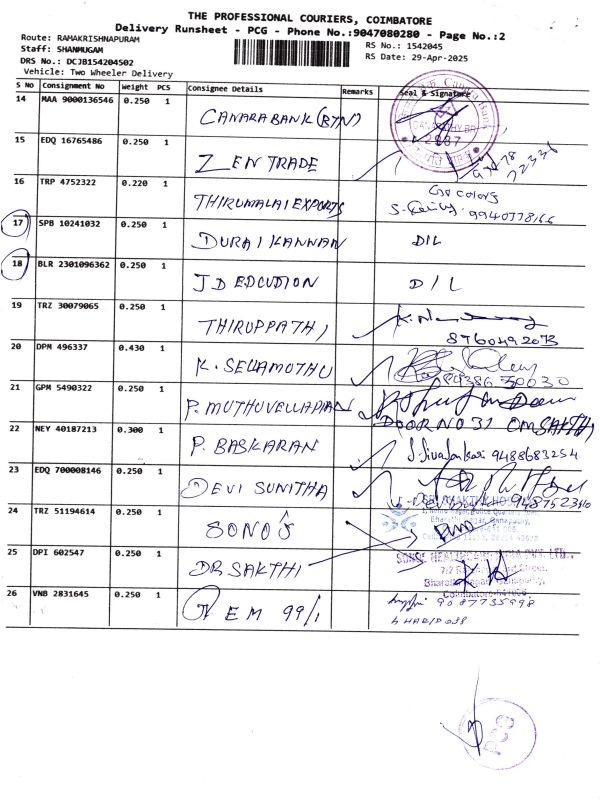 THE PROFESSIONAL COURIERS, COIMBATORE
Delivery Runsheet - PCG - Phone No.:9047080280 - Page No.:2
Route: RAMAKRISHNAPURAM
Staff: SHANMUGAM
RS No.: 1542045
DRS No.: DCJB154204502
RS Date: 29-Apr-2025
Vehicle: Two Wheeler Delivery
S No Consignment No Weight PCS Consignee Details Remarks Seal & Signature
14 MAA 9000136546 0.250 1 CANARA BANK (BTN)
15 EDQ 16765486 0.250 1 ZEN TRADE
16 TRP 4752322 0.220 1 THIRUMALAI EXPORTS 9940778166
17 SPB 10241032 0.250 1 DURAI KANNAN DIL
18 BLR 2301096362 0.250 1 JD EDCUDION D/L
19 TRZ 30079065 0.250 1 THIRUPPATHI
8760492073
20 DPM 496337 0.430 1 K. SELLAMOTHU
9438670030
21 GPM 5490322 0.250 1 P. MUTHUVELLAPPAN
DOOR NO 31 OM SAKTHI
22 NEY 40187213 0.300 1 P. BASKARAN 9488683254
23 EDQ 700008146 0.250 1 DEVI SUNITHA
9487523410
24 TRZ 51194614 0.250 1 SONO'S
25 DPI 602547 0.250 1 DR SAKTHI
26 VNB 2831645 0.250 1 TEM 99/1 9087735998
PCG